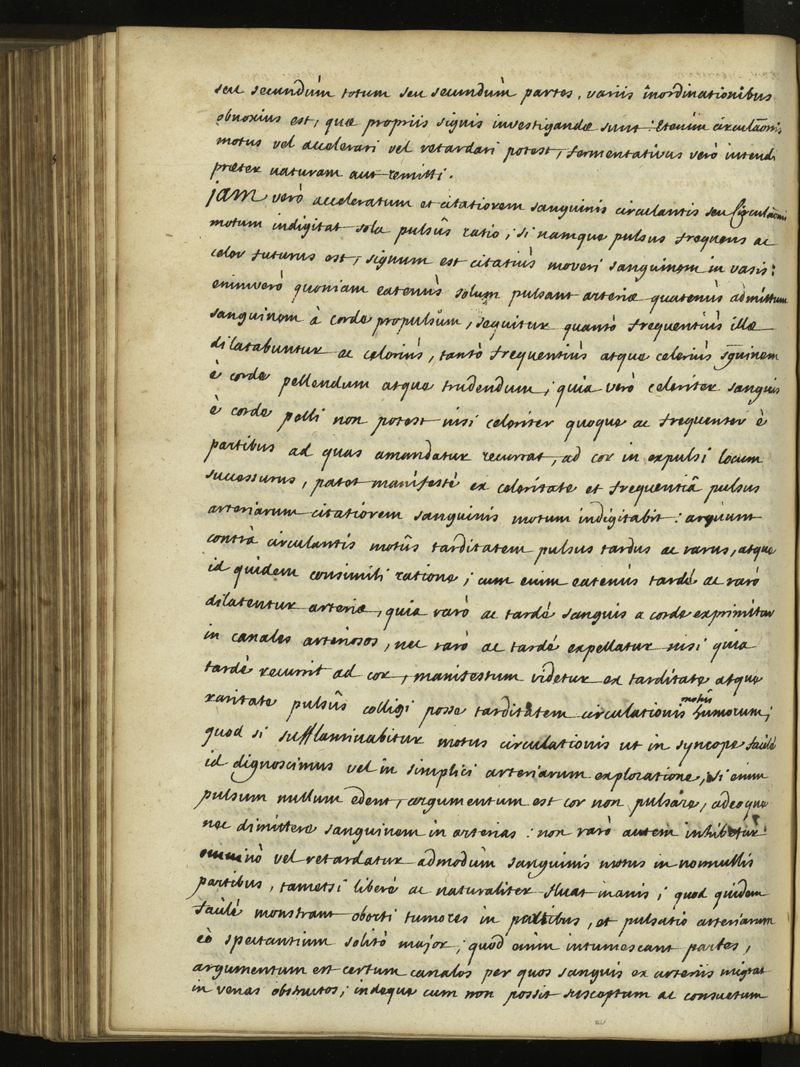 seu secundùm totum seu secundùm partes, variis inordinationibus
obnoxius est, quæ propriis signis investigandæ sunt: Etenim circulaōnis
motus vel accelerari vel retardari potest, fermentativus verò intendi
præter naturam aut remitti.
jam verò acceleratum et citatiorem sanguinis circulantis seu
motum indigitat sola pulsûs ratio; si namque pulsus frequens ac
celer futurus est, signum est citatiùs moveri sanguinem in vasis:
enimverò quoniam eatenùs solum pulsant arteriæ quatenùs admittunt
sanguinem à corde propulsum, sequitur quantò frequentiùs illæ
dilatabuntur ac celeriùs, tantò frequentiùs atque celeriùs sguinem
è corde pellendum atque trudendum; quia verò celeriter sanguis
è corde pelli non potest nisi celeriter quoque ac frequenter è
partibus ad quas amandatur recurrat, ad cor in expulsi locum
successurus, patet manifestè ex celeritate et frequentiâ pulsus
arteriarum citatiorem sanguinis motum indigitabit: arguunt
contrà circulantis motûs tarditatem pulsus tardus ac rarus, atque
id quidem consimili ratione; cum enim eatenùs tardè ac rarò
dilatentur arteriæ, quia rarò ac tardè sanguis a corde exprimitur
in canales arteriosos, nec rarò ac tardè expellatur nisi quia
tardè recurrit ad cor, manifestum videtur ex tarditate atque
raritate pulsûs colligi posse tarditatem circulationis motûs humorum;
quod si sufflaminabitur motus circulationis ut in syncope facilè
id dignoscimus vel in simplici arteriarum exploratione, si enim
pulsum nullum edent, argumentum est cor non pulsare, adeoque
nec dimittere sanguinem in arterias: non rarò autem inhibetur
omninò vel retardatur admodùm sanguinis motus in nonnullis
partibus, tametsi liberè ac naturaliter fluat in aliis; quod quidem
facilè monstrant oborti tumores in partibus, et pulsatio arteriarum
eò spectantium solitò major; quòd enim intumescant partes,
argumentum est certum canales per quos sanguis ex arteriis migrat
in venas obstructos; indeque cum non possit susceptum ac consuetum